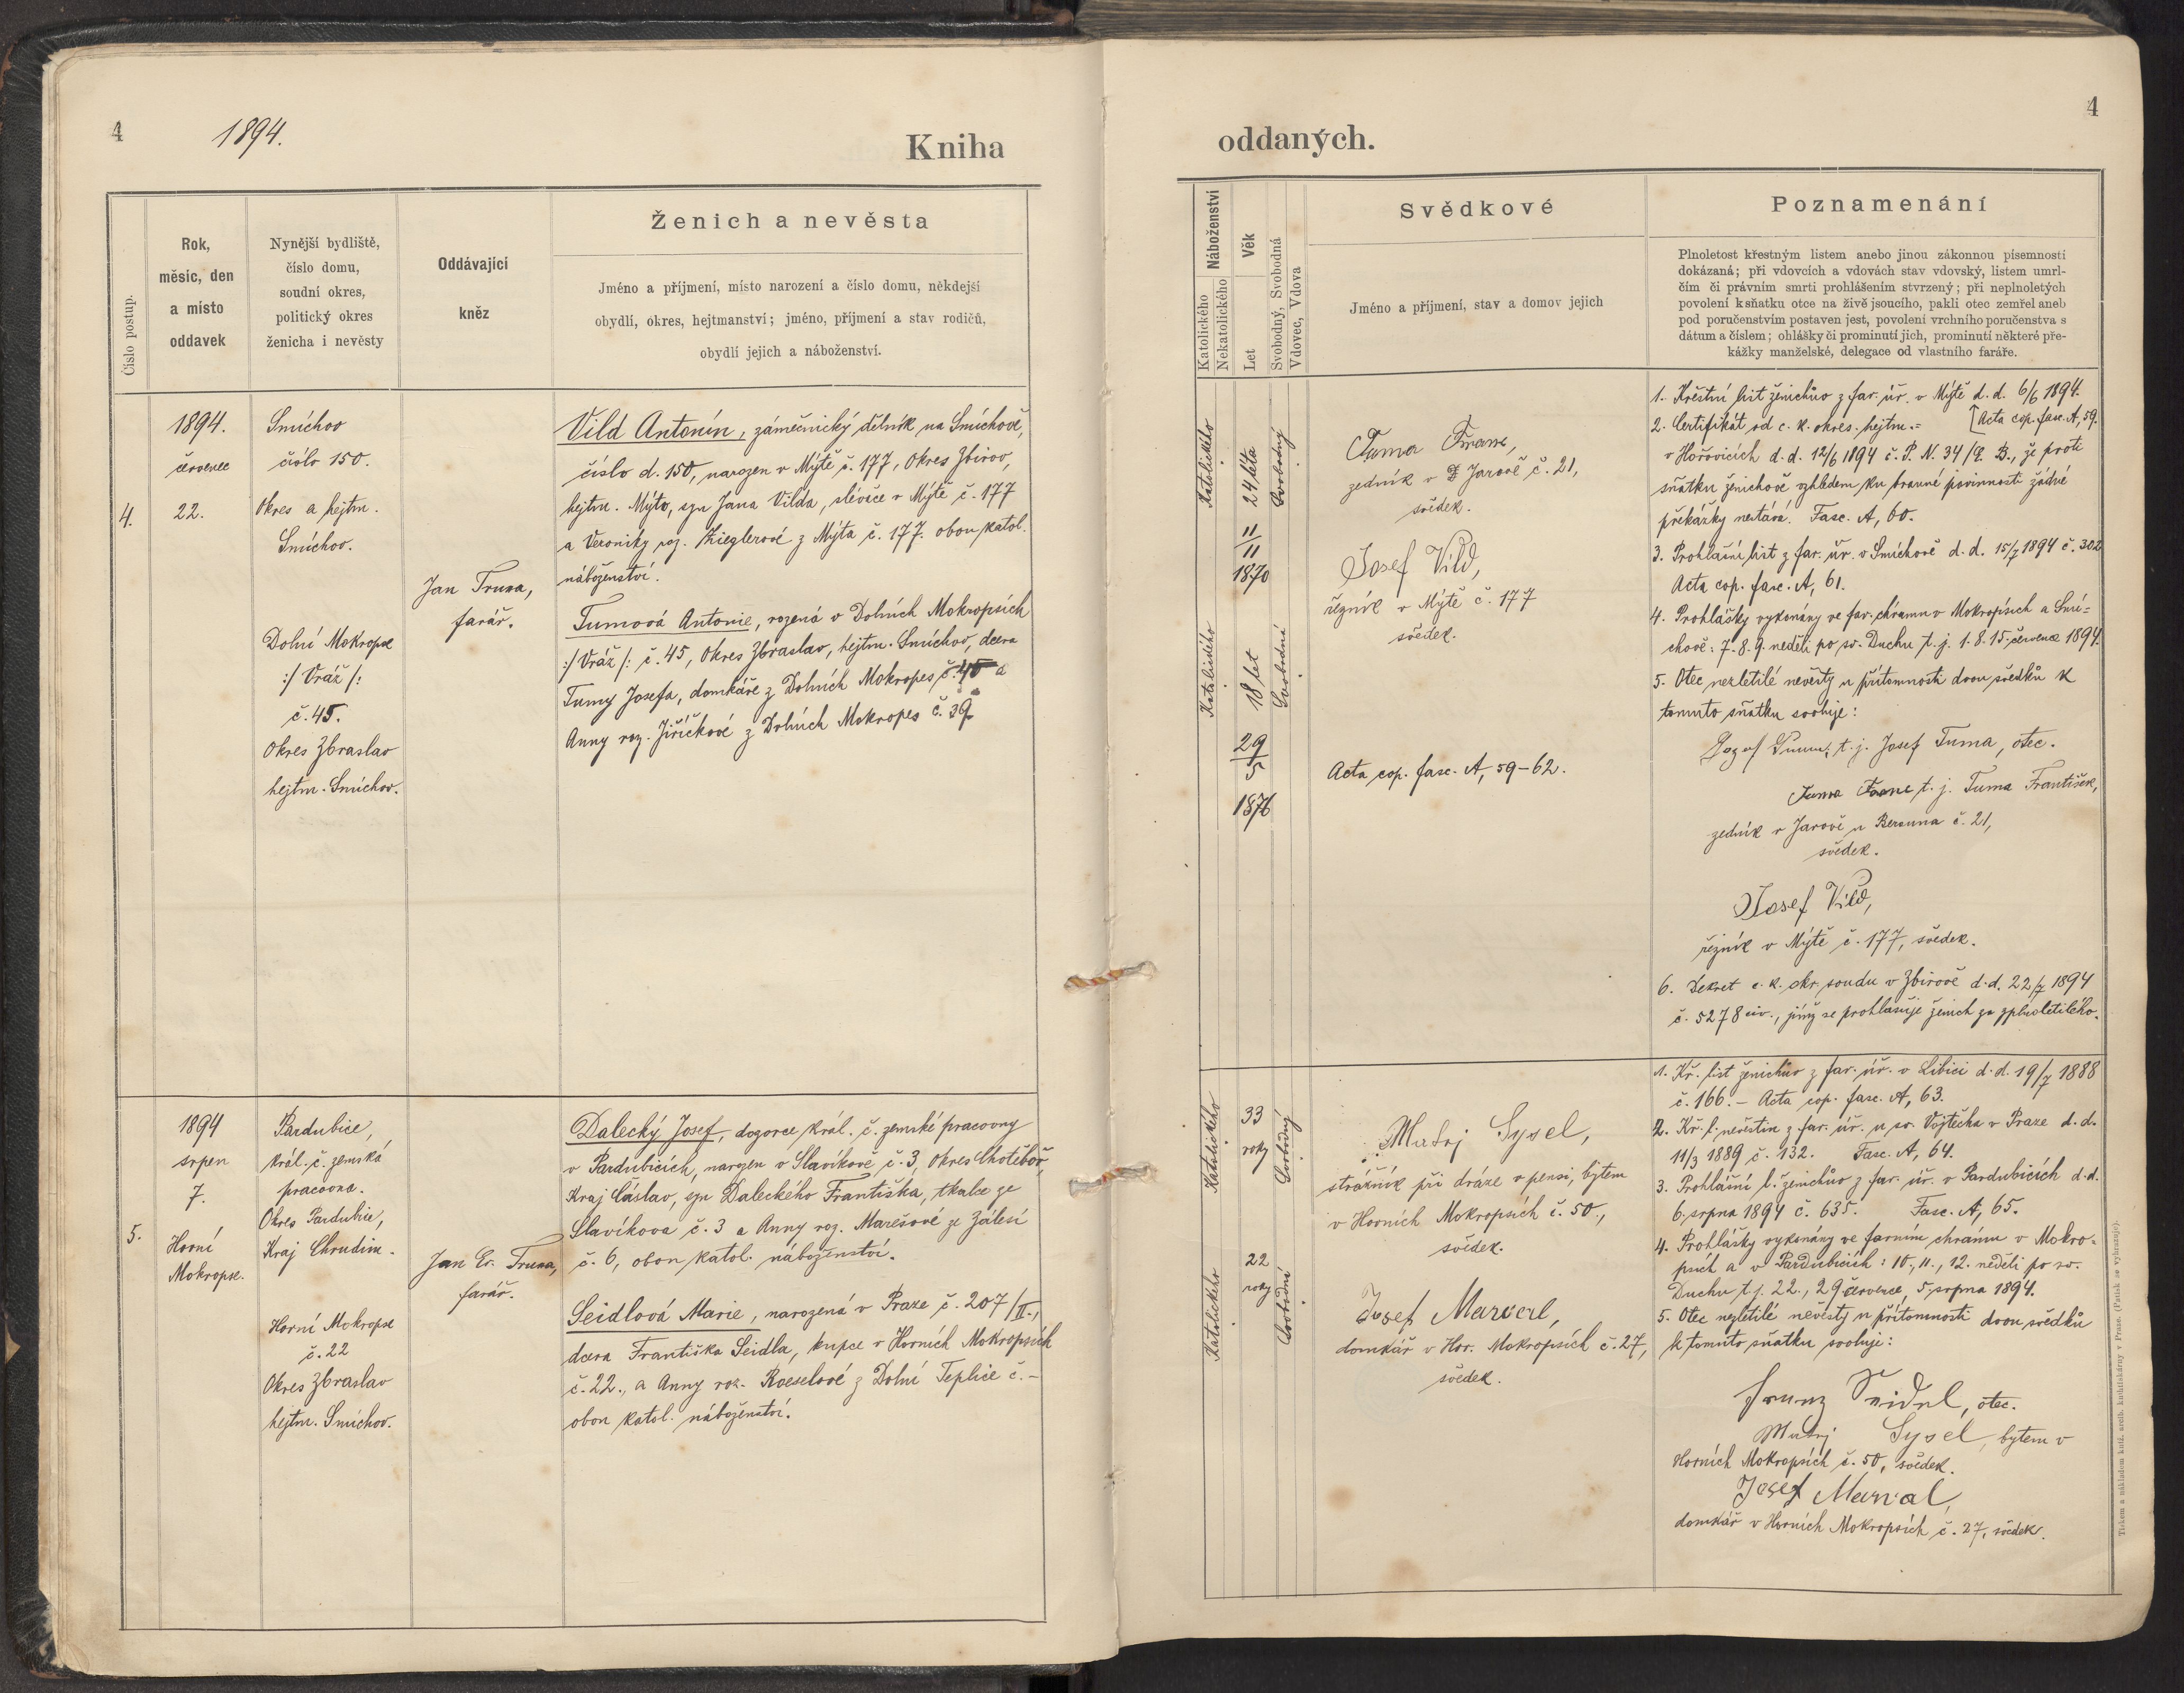 4
1894.
Kniha
Číslo postup.
Rok,
měsíc, den
a místo
oddavek
Nynější bydliště,
číslo domu,
soudní okres,
politický okres
ženicha i nevěsty
Oddávající
kněz
Ženich a nevěsta
Jméno a příjmení, místo narození a číslo domu, někdejší
obydlí, okres, hejtmanství; jméno, příjmení a stav rodičů,
obydlí jejich a náboženství.
4.
1894.
červenec
22.
Smíchov
číslo 150.
Okres a hejtm.
Smíchov.
Dolní Mokropse
:/ Vráž /:
č. 45.
Okres Zbraslav
hejtm. Smíchov.
Jan Trusa,
farář.
Vild Antonín, zámečnický dělník na Smíchově,
číslo d. 150, narozen v Mýtě č. 177, Okres Zbirov,
hejtm. Mýto, syn Jana Vilda, slévače v Mýtě č. 177
a Veroniky roz. Zieglerové z Mýta č. 177. obou katol.
náboženství.
Tumová Antonie, rozená v Dolních Mokropsích
:/ Vráž /: č. 45, Okres Zbraslav, hejtm. Smíchov, dcera
Tumy Josefa, domkáře z Dolních Mokropes č. 45 a
Anny roz. Jiříčkové z Dolních Mokropes č. 39.
5.
1894
srpen
7.
Horní
Mokropse.
Pardubice,
král. č. zemská
pracovna.
Okres Pardubice,
Kraj Chrudim.
Horní Mokropse
č. 22
Okres Zbraslav
hejtm. Smíchov.
Jan Ev. Trusa,
farář.
Dalecký Josef, dozorce král. č. zemské pracovny
v Pardubicích, narozen v Slavíkově č. 3, Okres Chotěboř,
Kraj Čáslav, syn Daleckého Františka, tkalce ze
Slavíkova č. 3 a Anny roz. Marešové ze Zálesí
č. 6, obou katol. náboženství.
Seidlová Marie, narozená v Praze č. 207/II.,
dcera Františka Seidla, kupce v Horních Mokropsích
č. 22., a Anny roz. Roeselové z Dolní Teplice č. -
obou katol. náboženství.
4
oddaných.
Náboženství
Katolického
Nekatolického
Věk
Let
Svobodný, Svobodná
Vdovec, Vdova
Svědkové
Jméno a příjmení, stav a domov jejich
Poznamenání
Plnoletost křestným listem anebo jinou zákonnou písemností
dokázaná; při vdovcích a vdovách stav vdovský, listem umrl-
čím či právním smrti prohlášením stvrzený; při neplnoletých
povolení k sňatku otce na živě jsoucího, pakli otec zemřel aneb
pod poručenstvím postaven jest, povolení vrchního poručenstva s
dátum a číslem; ohlášky či prominutí jich, prominutí některé pře-
kážky manželské, delegace od vlastního faráře.
Katolického
24 léta
Svobodný
11
11
1870
Katolického
18 let
Svobodná
29
5
1876
Tuma Franc,
zedník v Jarově č. 21,
svědek.
Josef Vild,
řezník v Mýtě č. 177
svědek.
Acta cop. fasc. A, 59-62.
1. Křestní list ženichův z far. úř. v Mýtě d. d. 6/6 1894.
[Acta cop. fasc. A, 59.
2. Certifikát od c. k. okres. hejtm.=
v Hořovicích d. d. 12/6 1894 č. P. N. 34/9. B., že proti
sňatku ženichově vzhledem ku branné povinnosti žádné
překážky nestává. Fasc. A, 60.
3. Prohlašní list z far. úř. v Smíchově d. d. 15/7 1894 č. 302
Acta cop. fasc. A, 61.
4. Prohlášky vykonány ve far. chrámu v Mokropsích a Smí=
chově: 7. 8. 9. neděli po sv. Duchu t. j. 1. 8. 15. července 1894.
5. Otec nezletilé nevěsty u přítomnosti dvou svědků k
tomuto sňatku svoluje:
Jozef Tuma, t. j. Josef Tuma, otec.
Tuma Franc t. j. Tuma František,
zedník v Jarově u Berouna č. 21,
svědek.
Josef Vild,
řezník v Mýtě č. 177, svědek.
6. Dekret c. k. okr. soudu v Zbirově d. d. 22/7 1894
č. 5278 civ., jímž se prohlašuje ženich za zplnoletilého.
Katolického
33
roky
Svobodný
Katolického
22
roky
Svobodná
Matěj Sysel,
strážník při dráze v pensi, bytem
v Horních Mokropsích č. 50.,
svědek.
Josef Marval,
domkář v Hor. Mokropsích č. 27,
svědek.
1. Kř. list ženichův z far. úř. v Libici d. d. 19/7 1888
č. 166. - Acta cop. fasc. A, 63.
2. Kř. l. nevěstin z far. úř. u sv. Vojtěcha v Praze d. d.
11/3 1889 č. 132. Fasc. A, 64.
3. Prohlašní l. ženichův z far. úř. v Pardubicích d. d.
6. srpna 1894 č. 635. Fasc. A, 65.
4. Prohlášky vykonány ve farním chrámu v Mokro-
psích a v Pardubicích: 10., 11., 12. neděli po sv.
Duchu t. j. 22., 29 července, 5. srpna 1894.
5. Otec nezletilé nevěsty u přítomnosti dvou svědků
k tomuto sňatku svoluje:
Franz Seidel, otec.
Matěj Sysel, bytem v
Horních Mokropsích č. 50, svědek.
Josef Marval,
domkář v Horních Mokropsích č. 27, svědek.